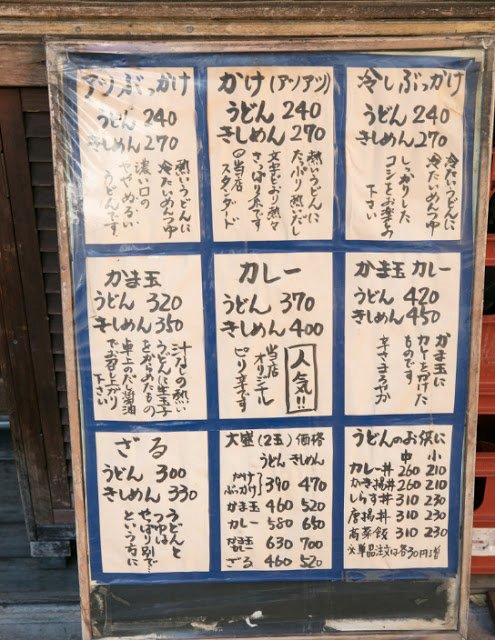 アツぶっかけ
うどん 240
きしめん 270
熱いうどんに
冷たいめんつゆ
濃い口の
ややぬるい
うどんです
かけ(アツアツ)
うどん 240
きしめん 270
熱いうどんに
たっぷり熱いだし
文字どおり熱々
さっぱり系です
当店
スタンダード
冷しぶっかけ
うどん 240
きしめん 270
冷たいうどんに
冷たいめんつゆ
しっかりした
コシをお楽しみ
下さい
かま玉
うどん 320
きしめん 350
汁なしの熱い
うどんに生玉子
をからめたもの
卓上のだし醤油
でお召し上がり
下さい
カレー
うどん 370
きしめん 400
人気!!
当店
オリジナル
ピリ辛です
かま玉カレー
うどん 420
きしめん 450
かま玉に
カレーをかけた
ものです
辛さまろやか
ざる
うどん 300
きしめん 330
うどんと
つゆは
やっぱり別で…
という方に
大盛(2玉)価格
うどん きしめん
かけ
ぶっかけ 390 470
かま玉 460 520
カレー 580 650
かま玉
カレー 630 700
ざる 460 520
うどんのお供に
中 小
カレー丼 260 210
かき揚丼 260 210
しらす丼 310 230
唐揚丼 310 230
高菜飯 310 230
※単品注文は各30円増